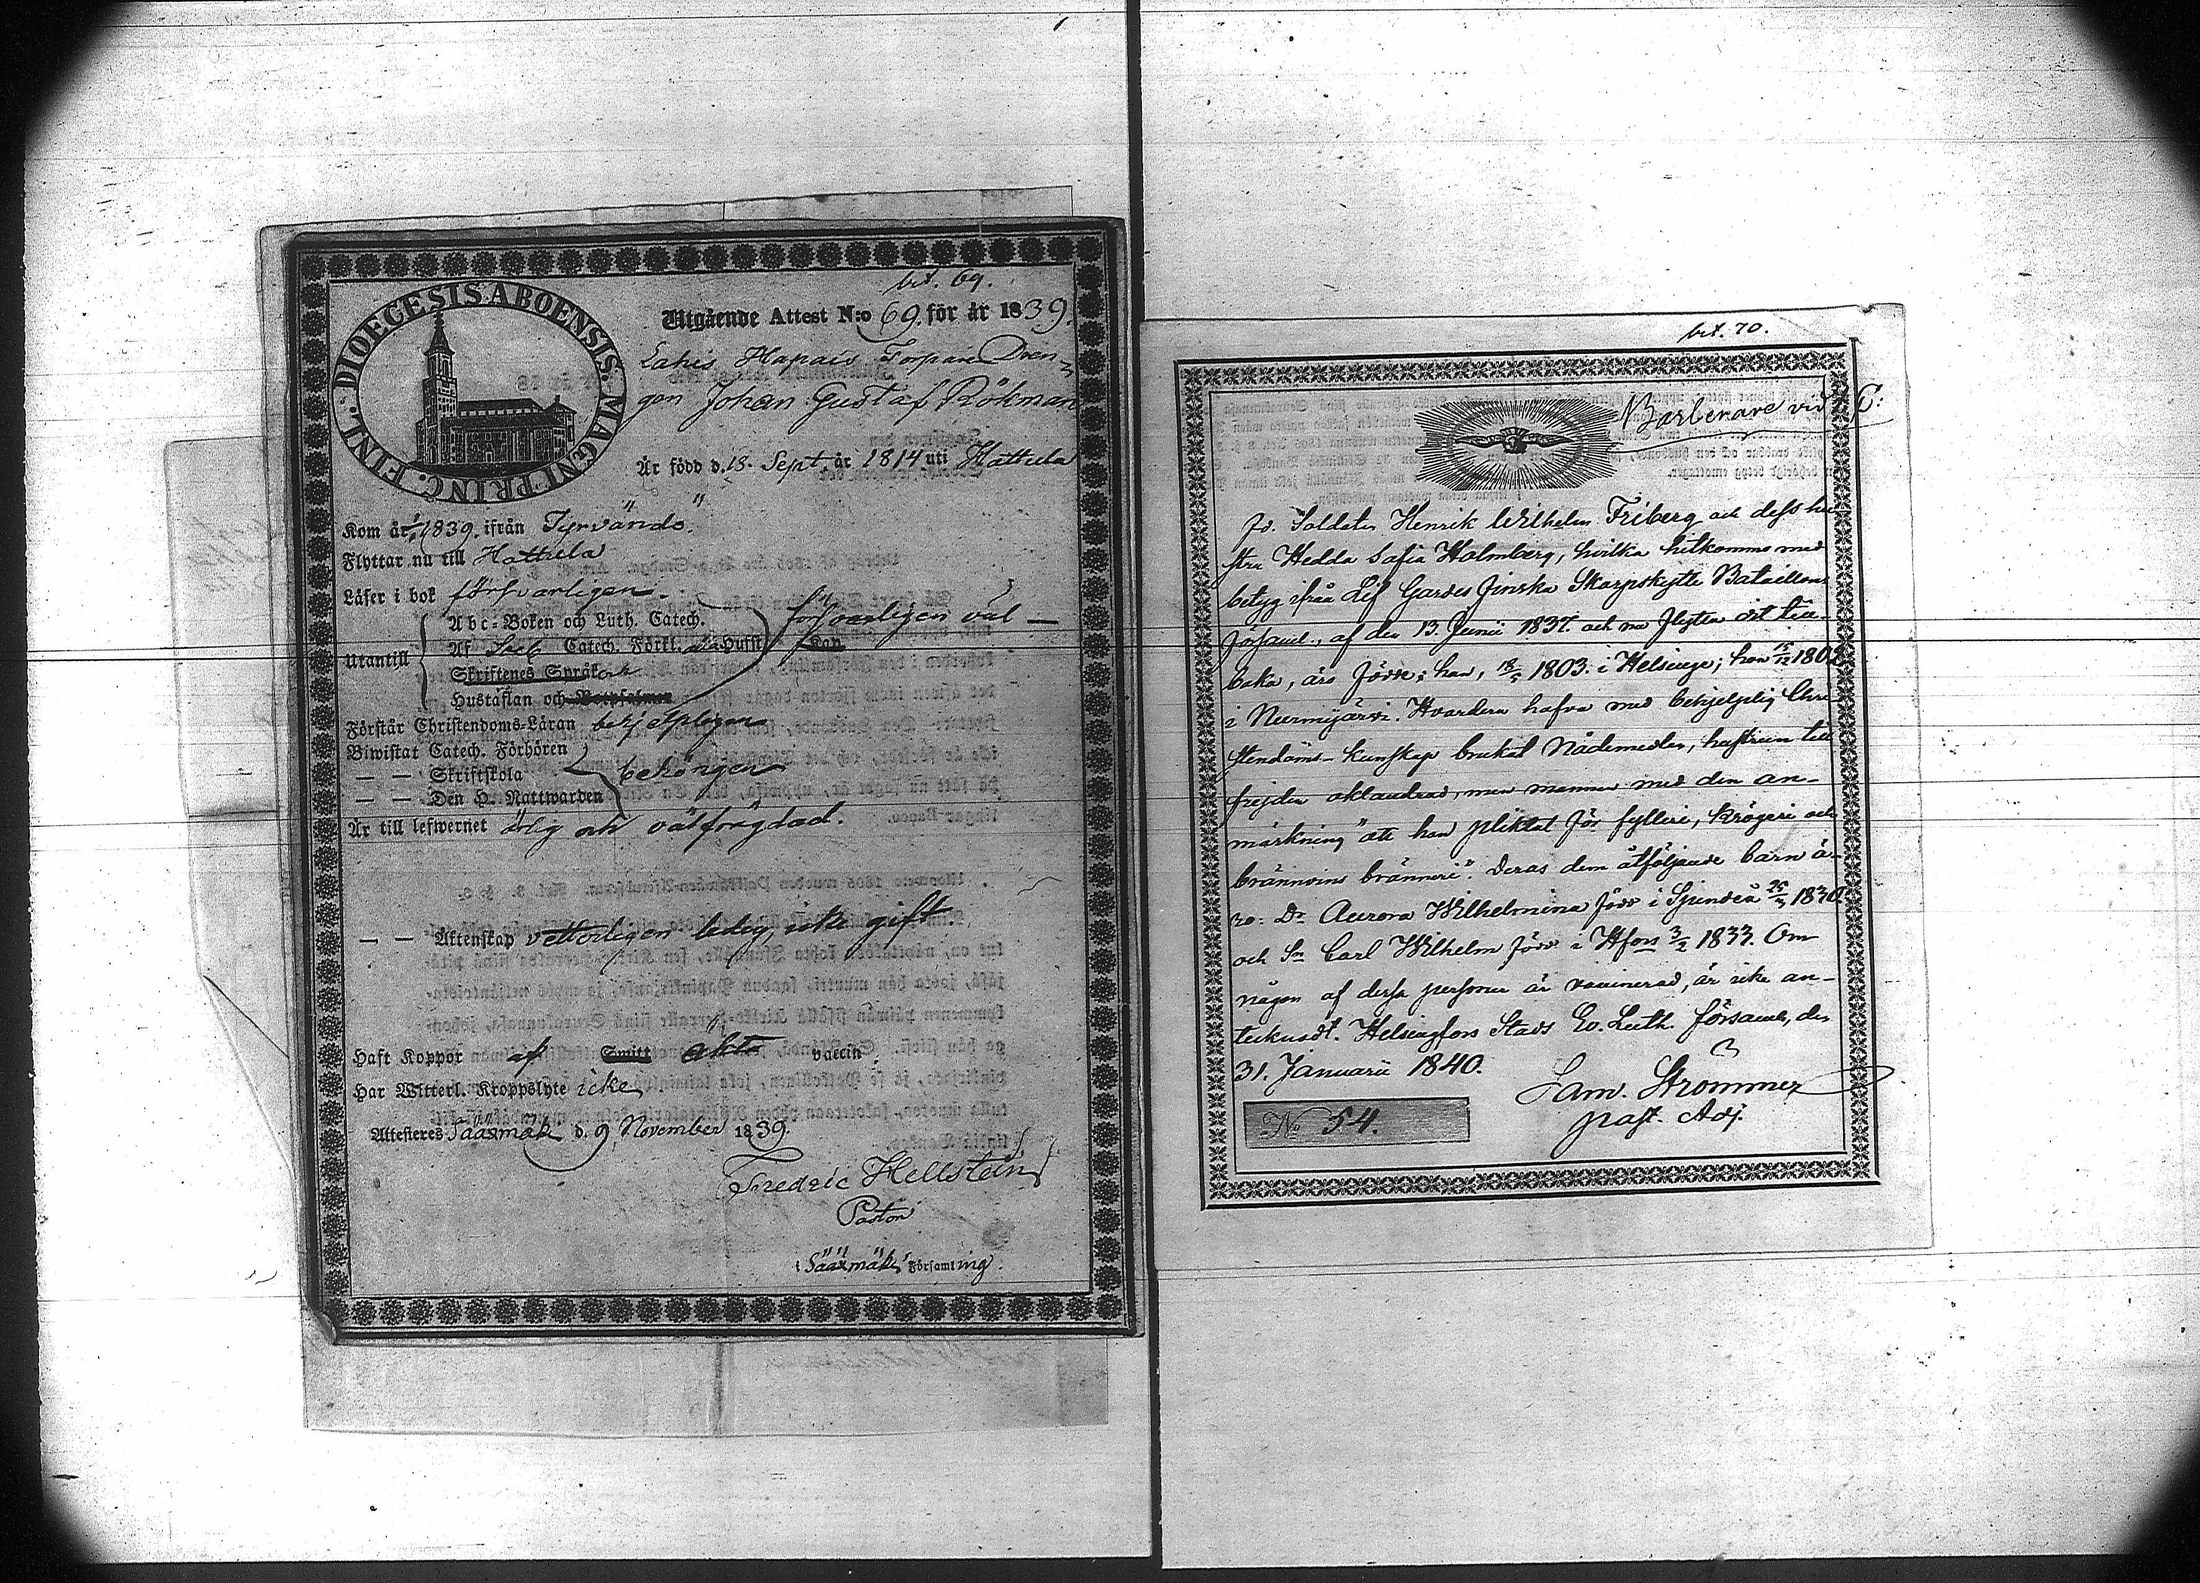 bit. 69.
DIOECESIS ABOENSIS. MAGNI PRINC. FINL.
Utgående Attest N:o 69. för år 1839.
Lahis Hapais Torpare Dren-
gen Johan Gustaf Rökman
Är född d. 18. Sept. år 1814 uti Hattula
Kom år 1839. ifrån Tyrvändö.
Flyttar nu till Hattula
Läser i bok försvarligen.
Abc-Boken och Luth. Catech.
Utantill Af Catech. Förkl. Husst försvarligen väl
Skriftenes Språk
Hustaflan och Botpsalmen
Förstår Christendoms-Läran behjelpligen
Biwistat Catech. Förhören
— — Skriftskola behörigen
— — Den H. Nattwarden
Är till lefwernet ärlig och välfrägdad.
— — Äktenskap vetterligen ledig, icke gift
Haft Koppor af Smitt äkta vaccin.
Har Witterl. Kroppslyte icke
Attesteres Sääxmäki d. 9 November 1839.
Fredric Hellsteń
Pastor
i Sääxmäki Församling.
bit. 70.
Barberare vid C:
Fd. Soldaten Henrik Wilhelm Friberg och dess hu
stru Hedda Safia Holmberg, hvilka hitkommo med
betyg ifrån Lif Gardes Finska Skarpskytte Bataillons
församl., af den 13. Junii 1837. och nu flytta dit till-
baka, äro födde; han, 18/5 1803. i Helsinge; hon 15/12 1802
i Nurmijärvi. Hvardera hafva med behjelplig Chri-
stendoms-kunskap brukat Nådemedlen, hustrun till
frejden oklandrad, men mannen med den an-
märkning "att han pliktat för fylleri, krögeri och
brännvins bränneri". Deras dem åtföljande barn ä-
ro: Dr Aurora Wilhelmina född i Sjundeå 25/5 1830
och Sn Carl Wilhelm född i Hfors 3/2 1833. Om
någon af dessa personer är vaccinerad, är icke an-
tecknadt. Helsingfors Stads Ev. Luth. församl., den
31. Januarii 1840.
Sam. Strömmer
past. Adj.
No 54.